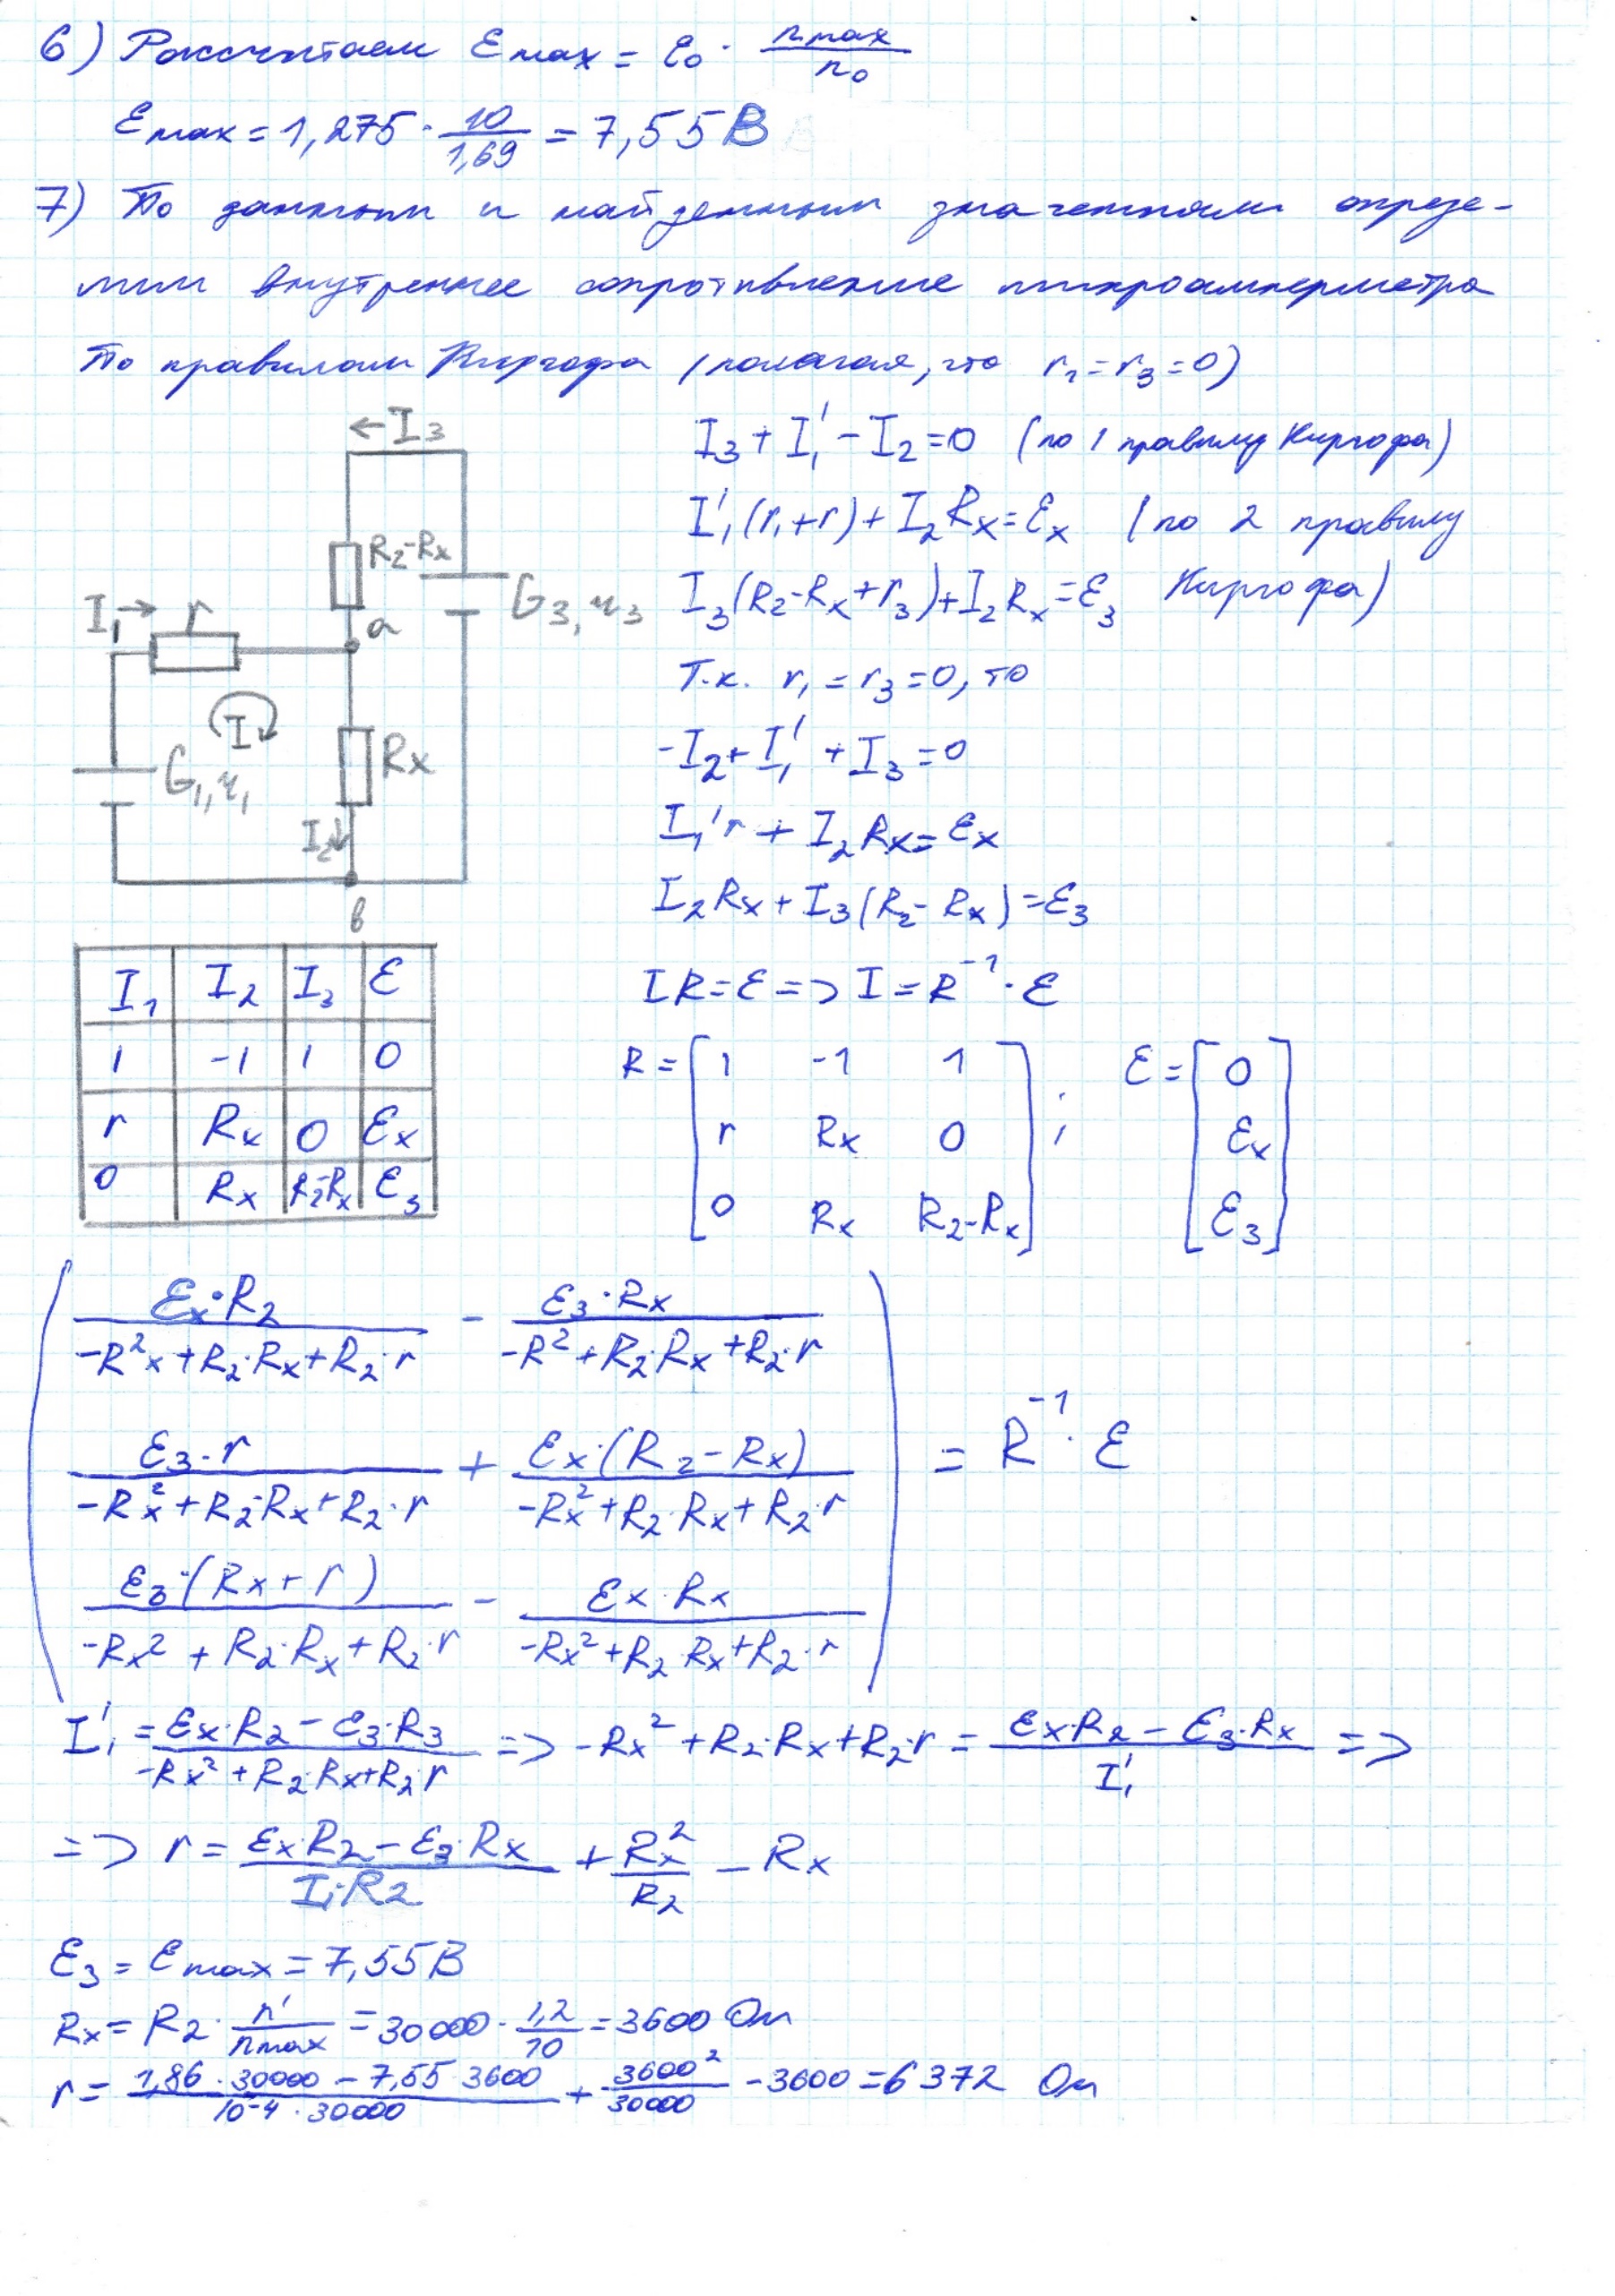 6) Рассчитаем Ɛmax = Ɛ₀ · nmax/n₀
Ɛmax = 1,275 · 10/1,69 = 7,55 В
7) По данным и найденным значениям опреде-
лим внутреннее сопротивление микроамперметра
По правилам Киргофа (полагая, что r₁ = r₃ = 0)
←I₃
R₂-Rx
G₃, r₃
I₁→
r
a
I
G₁, r₁
Rx
I₂↓
в
I₃ + I₁' - I₂ = 0 (по 1 правилу Киргофа)
I₁'(r₁+r) + I₂Rx = Ɛx (по 2 правилу
I₃(R₂-Rx+r₃) + I₂Rx = Ɛ₃ Киргофа)
Т.к. r₁ = r₃ = 0, то
-I₂ + I₁' + I₃ = 0
I₁'r + I₂Rx = Ɛx
I₂Rx + I₃(R₂-Rx) = Ɛ₃
I₁ I₂ I₃ Ɛ
1 -1 1 0
r Rx 0 Ɛx
0 Rx R₂-Rx Ɛ₃
IR = Ɛ => I = R⁻¹ · Ɛ
R = [1 -1 1
r Rx 0
0 Rx R₂-Rx] ; Ɛ = [0
Ɛx
Ɛ₃]
(Ɛx·R₂/(-R²x+R₂·Rx+R₂·r) - Ɛ₃·Rx/(-R²+R₂·Rx+R₂·r)
Ɛ₃·r/(-Rx²+R₂·Rx+R₂·r) + Ɛx·(R₂-Rx)/(-Rx²+R₂·Rx+R₂·r)
Ɛ₃·(Rx+r)/(-Rx²+R₂·Rx+R₂·r) - Ɛx·Rx/(-Rx²+R₂·Rx+R₂·r)) = R⁻¹ · Ɛ
I₁' = (Ɛx·R₂-Ɛ₃·R₃)/(-Rx²+R₂·Rx+R₂r) => -Rx²+R₂·Rx+R₂·r = (Ɛx·R₂-Ɛ₃·Rx)/I₁' =>
=> r = (Ɛx·R₂-Ɛ₃·Rx)/(I₁·R2) + Rx²/R₂ - Rx
Ɛ₃ = Ɛmax = 7,55 В
Rx = R₂ · n'/nmax = 30000 · 1,2/10 = 3600 Ом
r = (1,86 · 30000 - 7,55 · 3600)/(10⁻⁴ · 30000) + 3600²/30000 - 3600 = 6372 Ом